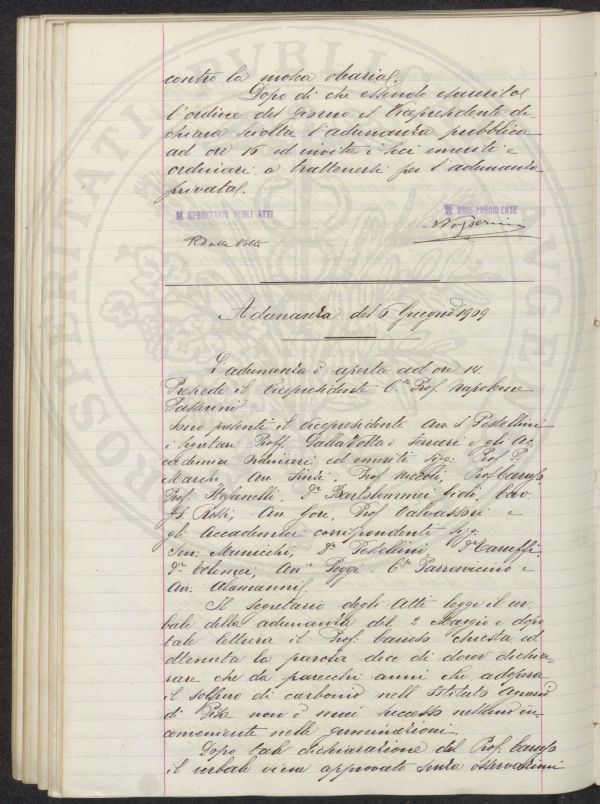 contro la mosca olearia.
Dopo di che essendo esaurito
l'ordine del giorno il Vicepresidente di-
chiara sciolta l'adunanza pubblica
ad ore 16 ed invita i soci emeriti e
ordinari a trattenersi per l'adunanza
privata.
IL SEGRETARIO DEGLI ATTI
IL VICE PRESIDENTE
Adunanza del 6 Giugno 1909
L'adunanza è aperta ad ore 14.
Presiede il Vicepresidente Prof. Napoleone
Passerini
Sono presenti il vicepresidente Avv. Pestellini
i Segretari Proff. Dalla Volta e Ferrari e gli Ac-
cademici Ordinari ed emeriti Sigg: Prof P.
Marchi, Prof Niccoli, Prof Caruso,
Prof. Stefanelli, Dr Bartolommei Gioli, Cav.
Rossi, Prof Valvassori e
gli Accademici corrispondenti sigg.
Sen. Municchi, Dr Pestellini, Dr Caruffi,
Dr Colomei, Poggi - Parravicino e
Alamanni.
Il Segretario degli Atti legge il ver-
bale della adunanza del 2 Maggio e dopo
tale lettura il Prof. Caruso chiesta ed
ottenuta la parola dice di dover dichia-
rare che da parecchi anni che adopera
il solfuro di carbonio nell'Istituto Agrario
di Pisa non è mai successo nessun in-
conveniente nelle germinazioni.
Dopo tale dichiarazione del Prof. Caruso
il verbale viene approvato senza osservazioni